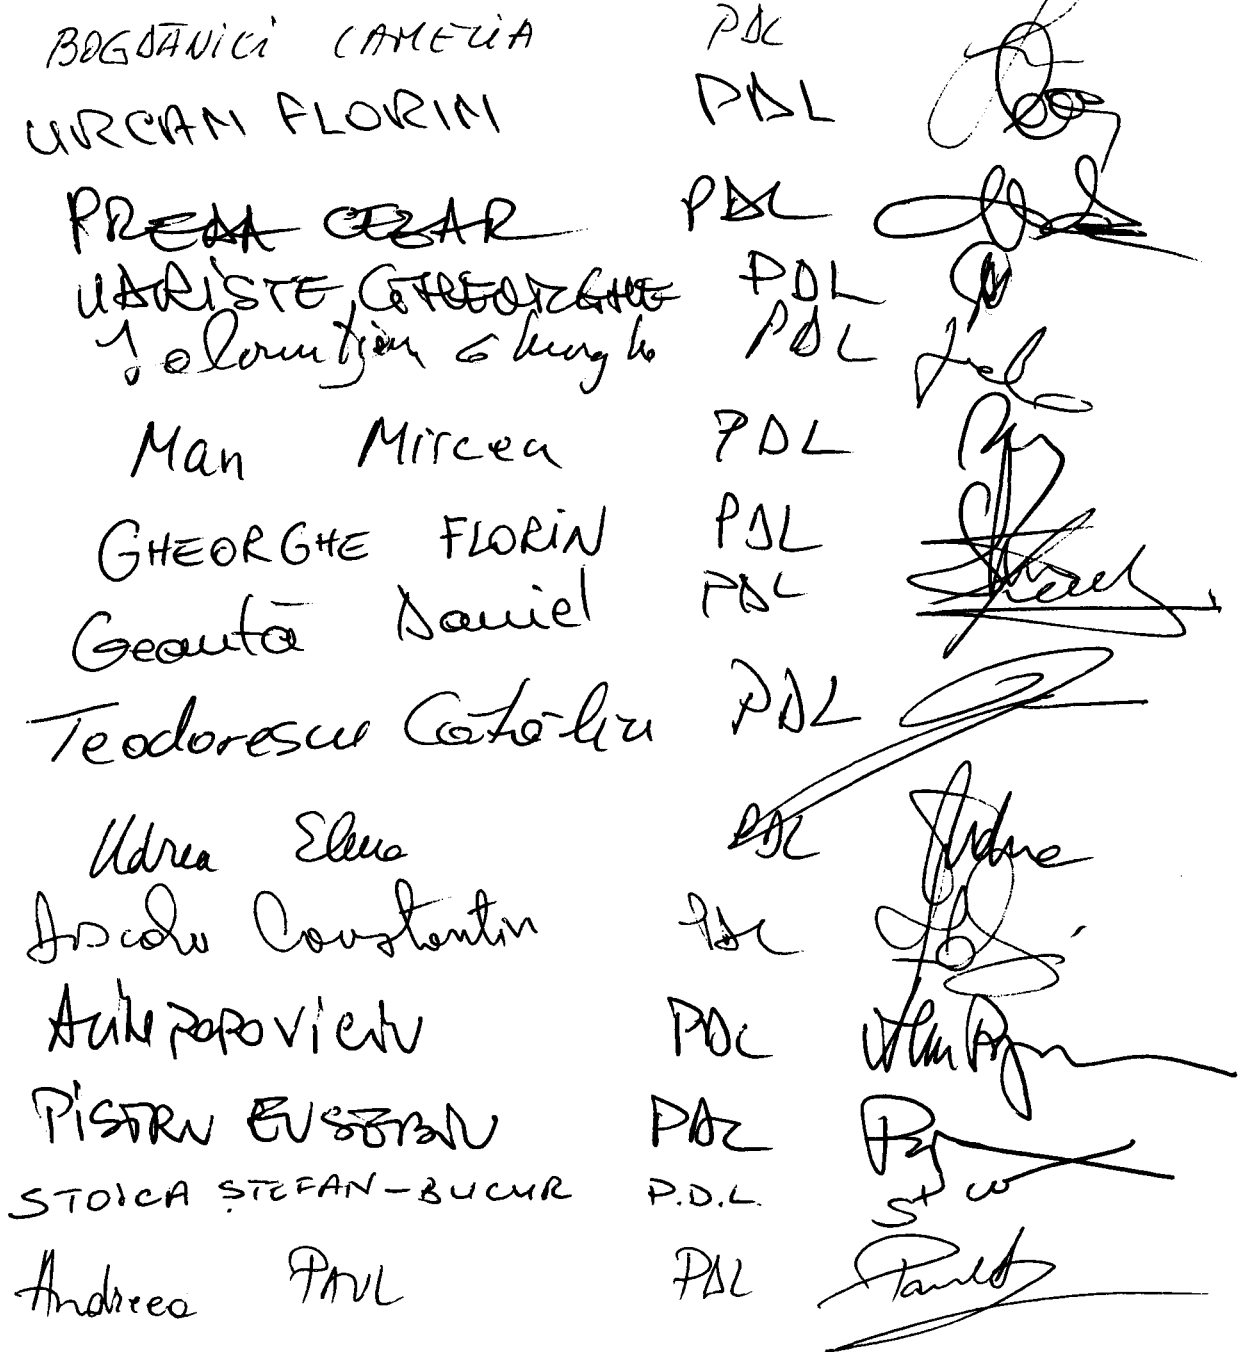 BOGDĂNICI CAMELIA PDL
URCAN FLORIN PDL
PREDA CEZAR PDL
UARISTE GHEORGHE PDL
Ialomițianu Gheorghe PDL
Man Mircea PDL
GHEORGHE FLORIN PDL
Geantă Daniel PDL
Teodorescu Cătălin PDL
Udrea Elena PDL Udrea
Dascălu Constantin PDL
ALIN POPOVICIU PDL
PISTRU EUSEBIU PDL
STOICA ȘTEFAN-BUCUR P.D.L.
Andreea PAUL PDL